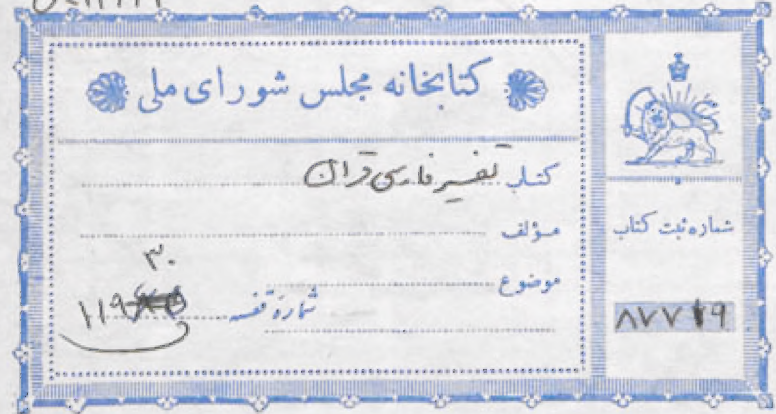 کتابخانه مجلس شورای ملی
کتاب تفسیر فارسی قرآن
مؤلف
موضوع
شماره قفسه
۳۰
۱۱۹
شماره ثبت کتاب